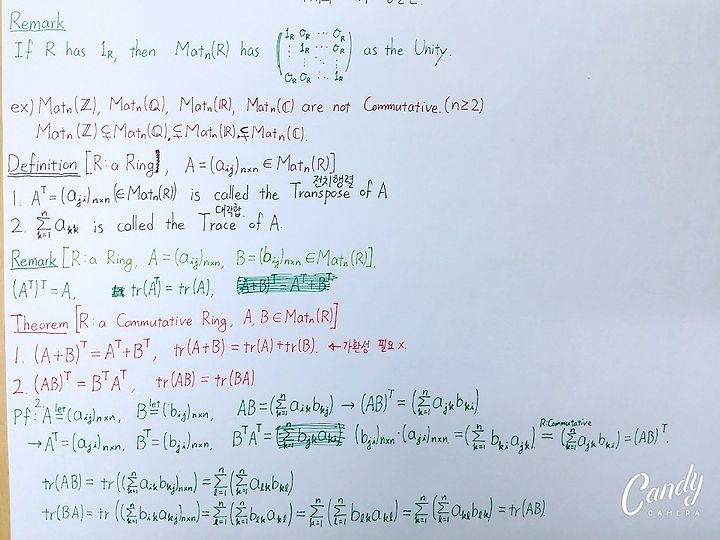 Remark
If R has 1_R, then Mat_n(R) has (1_R 0_R ⋯ 0_R ; ⋮ 1_R ⋯ 0_R ; ⋮ ⋱ ⋮ ; 0_R 0_R ⋯ 1_R) as the Unity.
ex) Mat_n(ℤ), Mat_n(ℚ), Mat_n(ℝ), Mat_n(ℂ) are not Commutative. (n≥2)
Mat_n(ℤ) ⊊ Mat_n(ℚ) ⊊ Mat_n(ℝ) ⊊ Mat_n(ℂ).
Definition [R: a Ring, A=(a_ij)_n×n ∈ Mat_n(R)]
전치행렬
1. A^T = (a_ji)_n×n (∈Mat_n(R)) is called the Transpose of A
대각합
2. ∑_{k=1}^{n} a_kk is called the Trace of A.
Remark [R: a Ring, A=(a_ij)_n×n, B=(b_ij)_n×n ∈ Mat_n(R)].
(A^T)^T = A, tr(A^T) = tr(A), (A+B)^T = A^T + B^T
Theorem [R: a Commutative Ring, A, B ∈ Mat_n(R)]
1. (A+B)^T = A^T + B^T, tr(A+B) = tr(A)+tr(B). ← 가환성 필요 x.
2. (AB)^T = B^T A^T, tr(AB) = tr(BA)
Pf: 2 A =^let (a_ij)_n×n, B =^let (b_ij)_n×n, AB = (∑_{k=1}^{n} a_ik b_kj) → (AB)^T = (∑_{k=1}^{n} a_jk b_ki)
R: Commutative
→ A^T = (a_ji)_n×n, B^T = (b_ji)_n×n, B^T A^T = (b_ji)_n×n · (a_ji)_n×n = (∑_{k=1}^{n} b_ki a_jk) = (∑_{k=1}^{n} a_jk b_ki) = (AB)^T.
tr(AB) = tr((∑_{k=1}^{n} a_ik b_kj)_n×n) = ∑_{ℓ=1}^{n} (∑_{k=1}^{n} a_ℓk b_kℓ)
tr(BA) = tr((∑_{k=1}^{n} b_ik a_kj)_n×n) = ∑_{ℓ=1}^{n} (∑_{k=1}^{n} b_ℓk a_kℓ) = ∑_{k=1}^{n} (∑_{ℓ=1}^{n} b_ℓk a_kℓ) = ∑_{k=1}^{n} (∑_{ℓ=1}^{n} a_kℓ b_ℓk) = tr(AB).
Candy
CAMERA